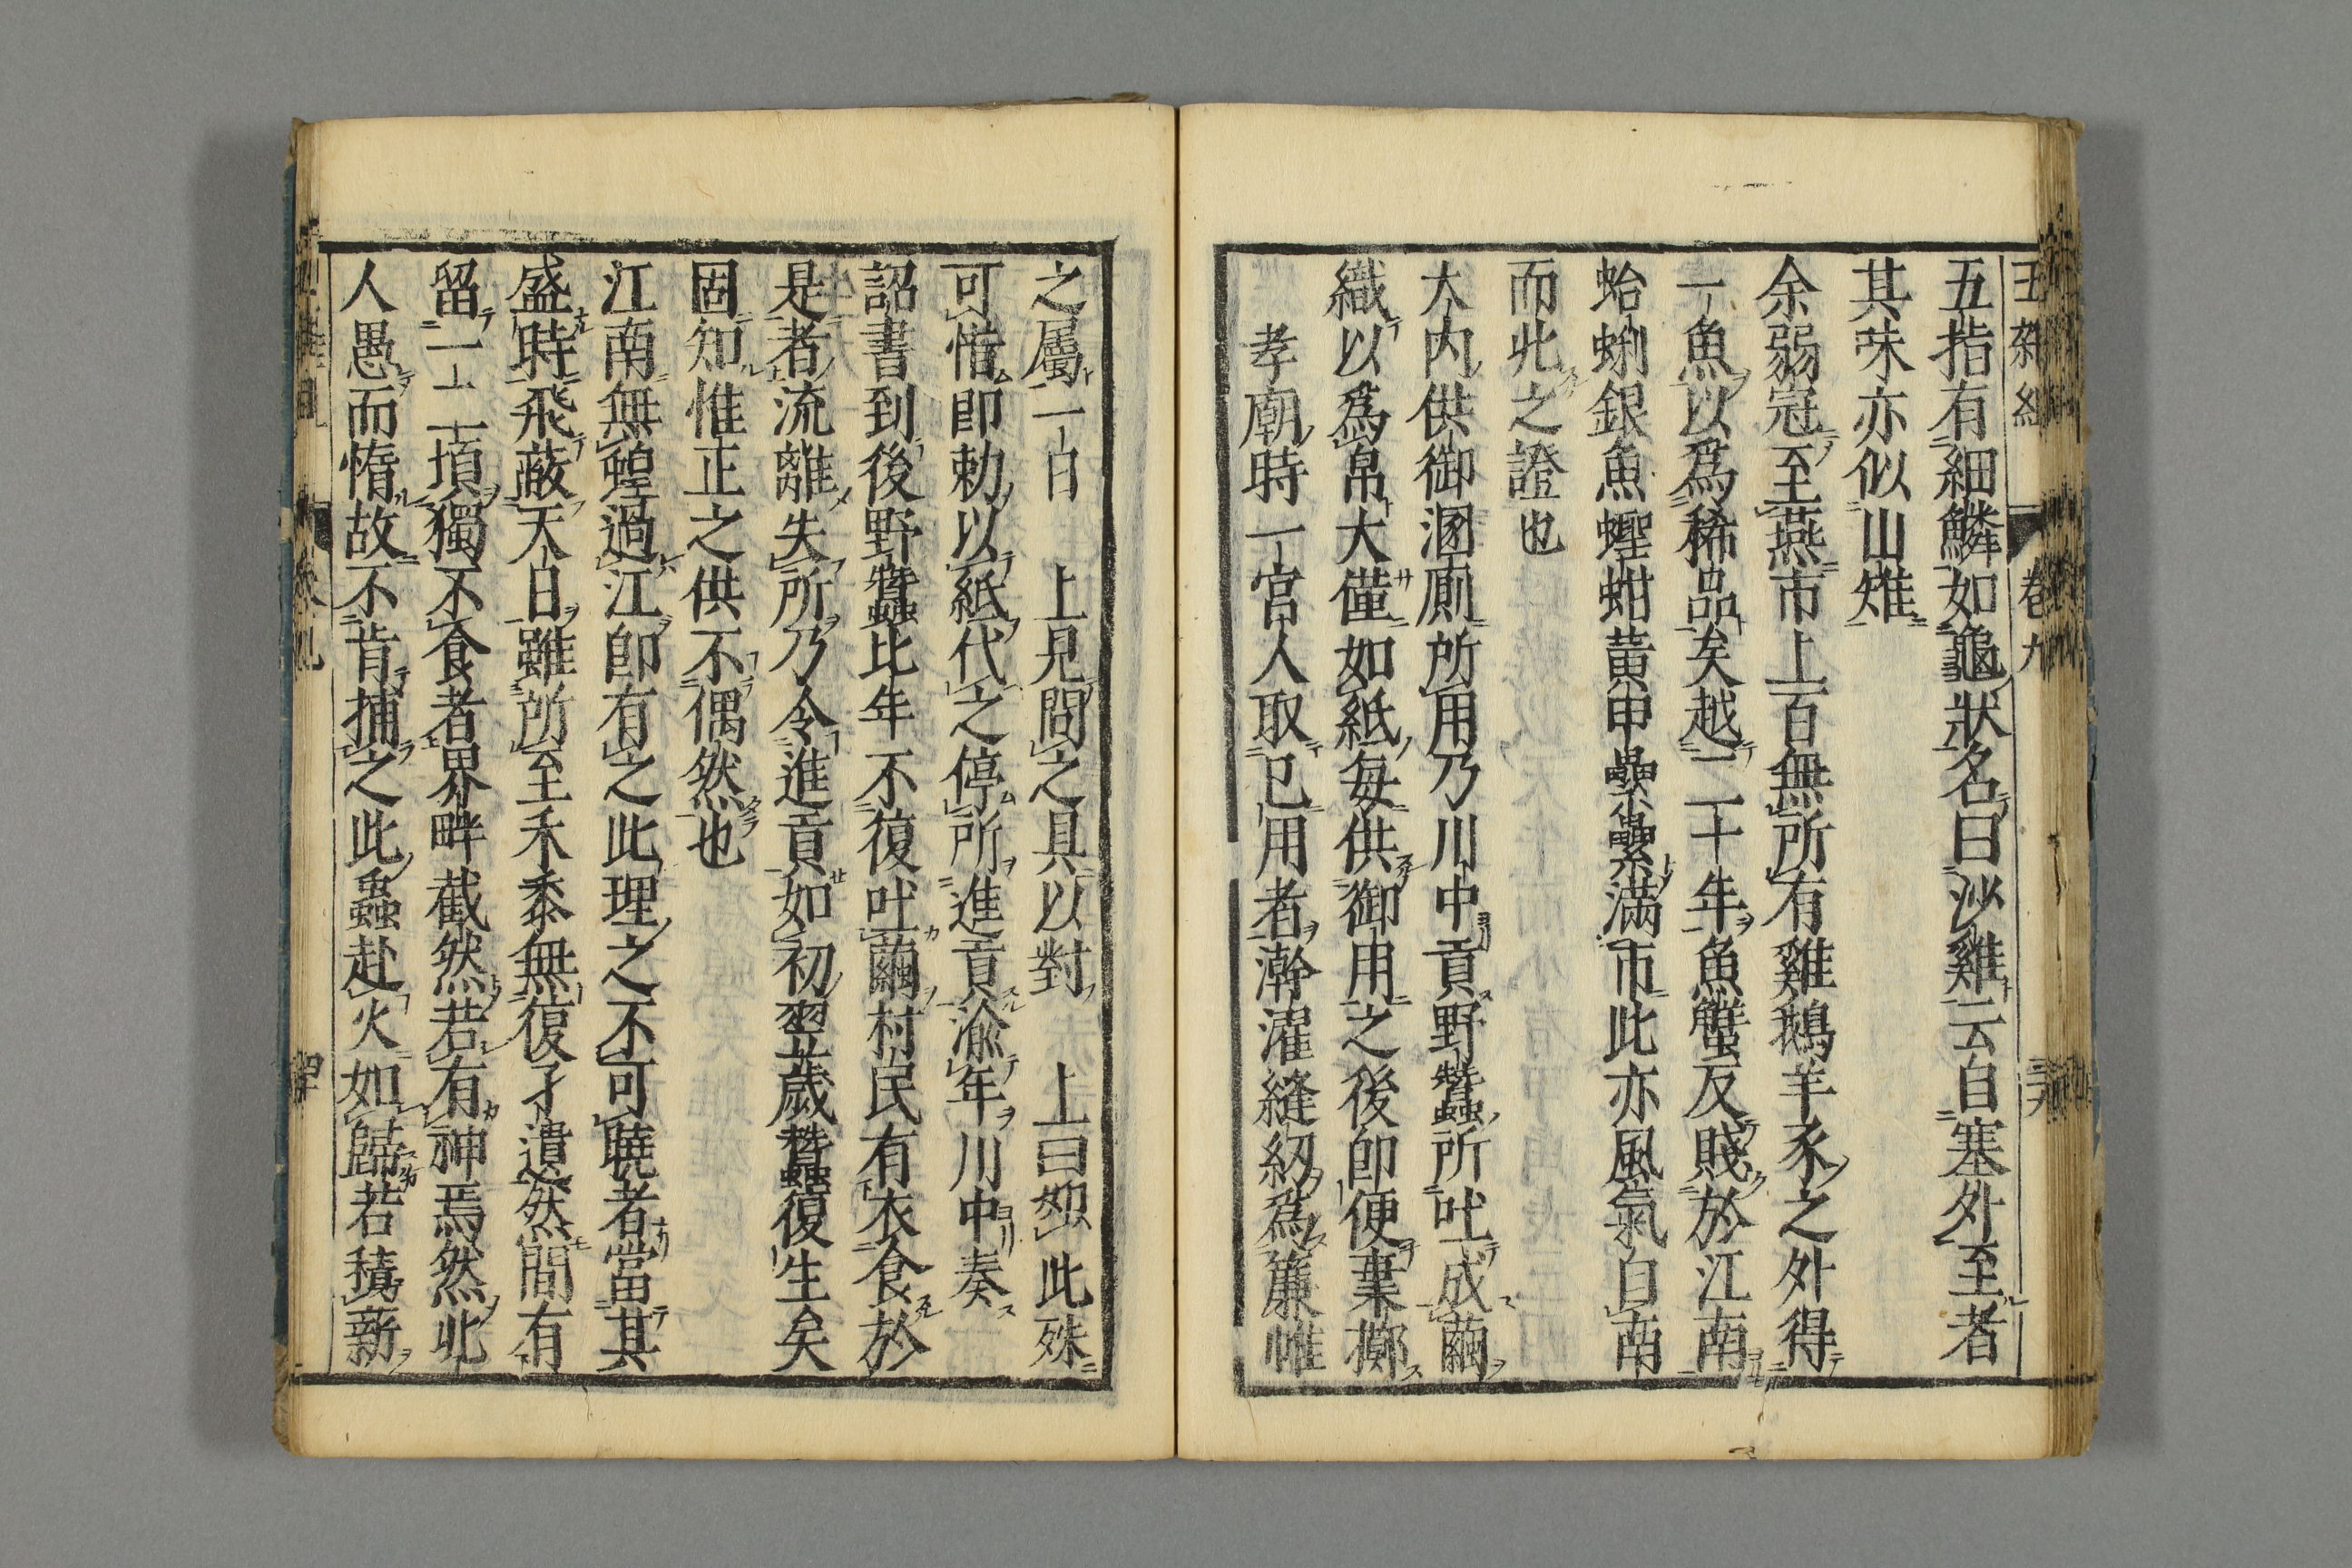 五雜組 卷九 三十九
五指有細鱗如龜狀名曰沙雞云自塞外至者
其味亦似山雉
余弱冠至燕市上百無所有雞鵝羊豕之外得
一魚以爲稀品矣越二十年魚蟹反賤於江南
蛤蜊銀魚蟶蚶黃甲纍纍滿市此亦風氣自南
而北之證也
大內供御溷廁所用乃川中貢野蠶所吐成繭
織以爲帛大僅如紙每供御用之後卽便棄擲
孝廟時一宮人取已用者澣濯縫紉爲簾帷
之屬一日　上見問之具以對　上曰如此殊
可惜卽勅以紙代之停所進貢渝年川中奏
詔書到後野蠶比年不復吐繭村民有衣食於
是者流離失所乃令進貢如初翌歲蠶復生矣
固知惟正之供不偶然也
江南無蝗過江卽有之此理之不可曉者當其
盛時飛蔽天日雖所至禾黍無復孑遺然間有
留一二頃獨不食者界畔截然若有神焉然北
人愚而惰故不肯捕之此蟲赴火如歸若積薪